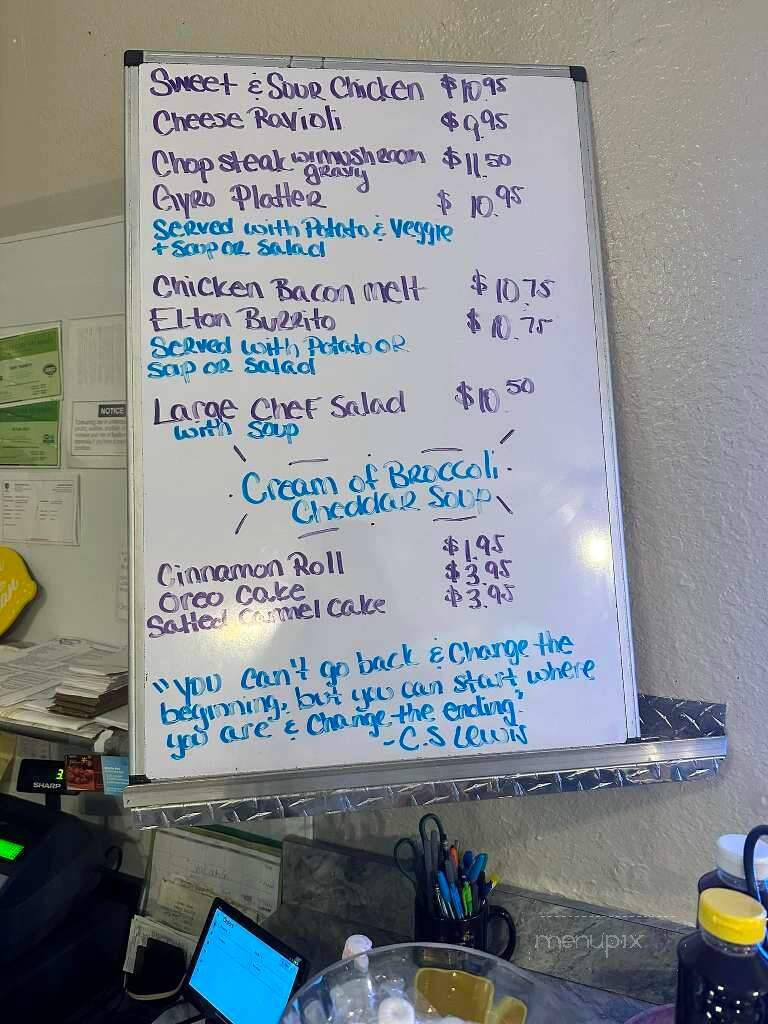 Sweet & Sour Chicken $10.95
Cheese Ravioli $9.95
Chop steak w/mushroom gravy $11.50
Gyro Platter $10.95
Served with Potato & Veggie
+ Soup or Salad
Chicken Bacon melt $10.75
Elton Burrito $10.75
Served with Potato or
Soup or Salad
Large Chef Salad $10.50
with Soup
Cream of Broccoli
Cheddar Soup
Cinnamon Roll $1.95
Oreo Cake $3.95
Salted Carmel Cake $3.95
"you can't go back & Change the
beginning, but you can start where
you are & Change the ending."
-C.S Lewis
NOTICE
SHARP
menupix